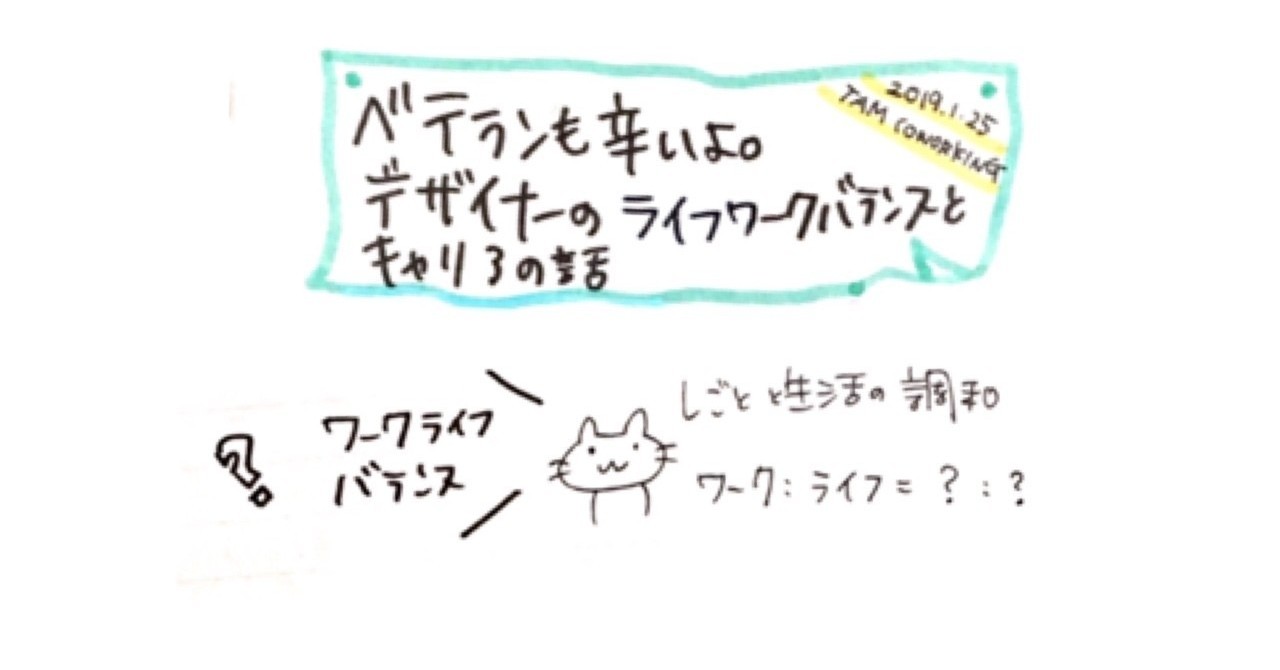 ベテランも辛いよ。
デザイナーのライフワークバランスと
キャリアの話
2019.1.25
TAM COWORKING
?
ワークライフ
バランス
しごとと生活の調和
ワーク:ライフ=?:?